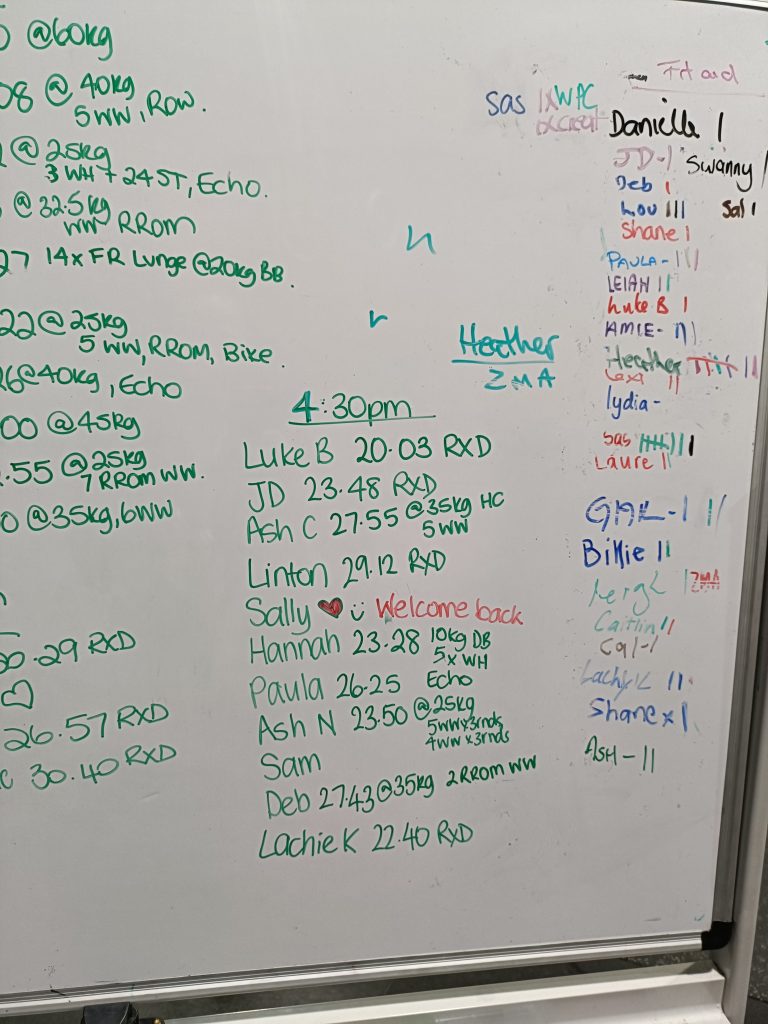 @60kg
08 @ 40kg
5 WW, Row.
@ 25kg
3 WH + 24 ST, Echo.
@ 32.5kg
WW RROM
27 14x FR Lunge @20kg BB.
22 @ 25kg
5 WW, RROM, Bike.
26@40kg, Echo
00 @ 45kg
.55 @25kg
7 RROM WW.
0 @35kg, 6WW
0.29 RXD
♡
26.57 RXD
C 30.40 RXD
Heather
ZMA
4:30pm
Luke B 20.03 RXD
JD 23.48 RXD
Ash C 27.55 @35kg HC
5 WW
Linton 29.12 RXD
Sally ❤ Welcome back
Hannah 23.28 10kg DB
5x WH
Paula 26.25 Echo
Ash N 23.50 @25kg
5WWx3rnds
4WWx3rnds
Sam
Deb 27.43@35kg 2RROM WW
Lachie K 22.40 RXD
Sas 1x WPC
Danielle I
JD-I Swanny I
Deb I
Lou III Sal I
Shane I
PAULA- III
LEIAH II
Luke B I
AMIE-
Heather
Lexi II
lydia-
Sas
Laure II
Billie II
ZMA
Caitlin II
Cal-I
Lachy K II
Shane x I
ASH-II